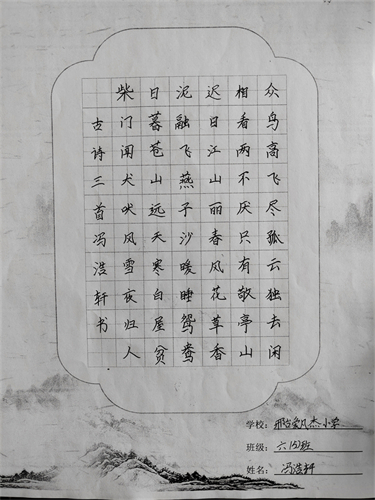 众鸟高飞尽孤云独去闲
相看两不厌只有敬亭山
迟日江山丽春风花草香
泥融飞燕子沙暖睡鸳鸯
日暮苍山远天寒白屋贫
柴门闻犬吠风雪夜归人
古诗三首冯浩轩书
学校：小学
班级：六班
姓名：冯浩轩